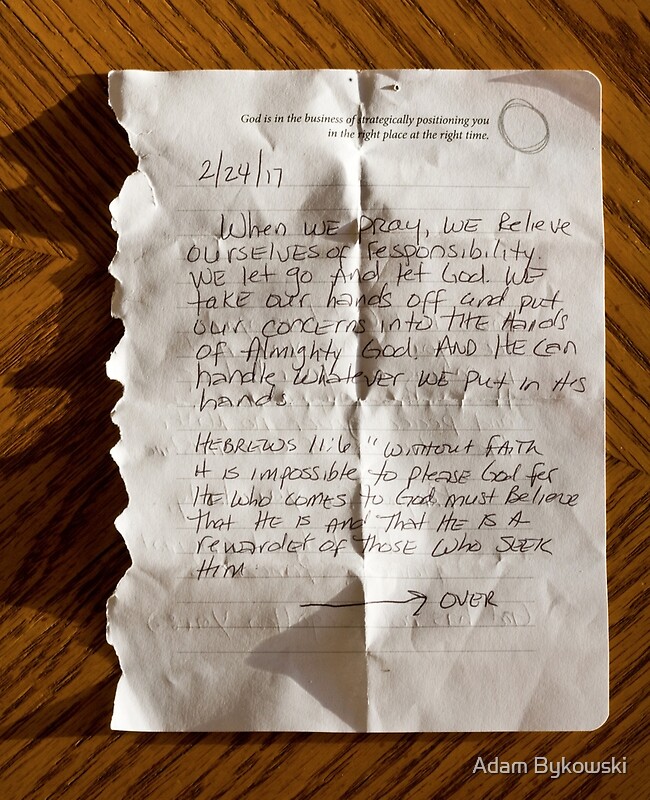 God is in the business of strategically positioning you
in the right place at the right time.
2/24/17
When WE pray, WE Relieve
OURSELVES of responsibility.
WE let go And let God. WE
take our hands off and put
our concerns into THE Hands
of Almighty God. AND HE Can
handle whatever WE put in His
hands.
HEBREWS 11:6 "WITHOUT FAITH
it is impossible to please God for
HE who comes to God must Believe
that HE is and that HE is A
rewarder of those who SEEK
Him.
OVER
Adam Bykowski